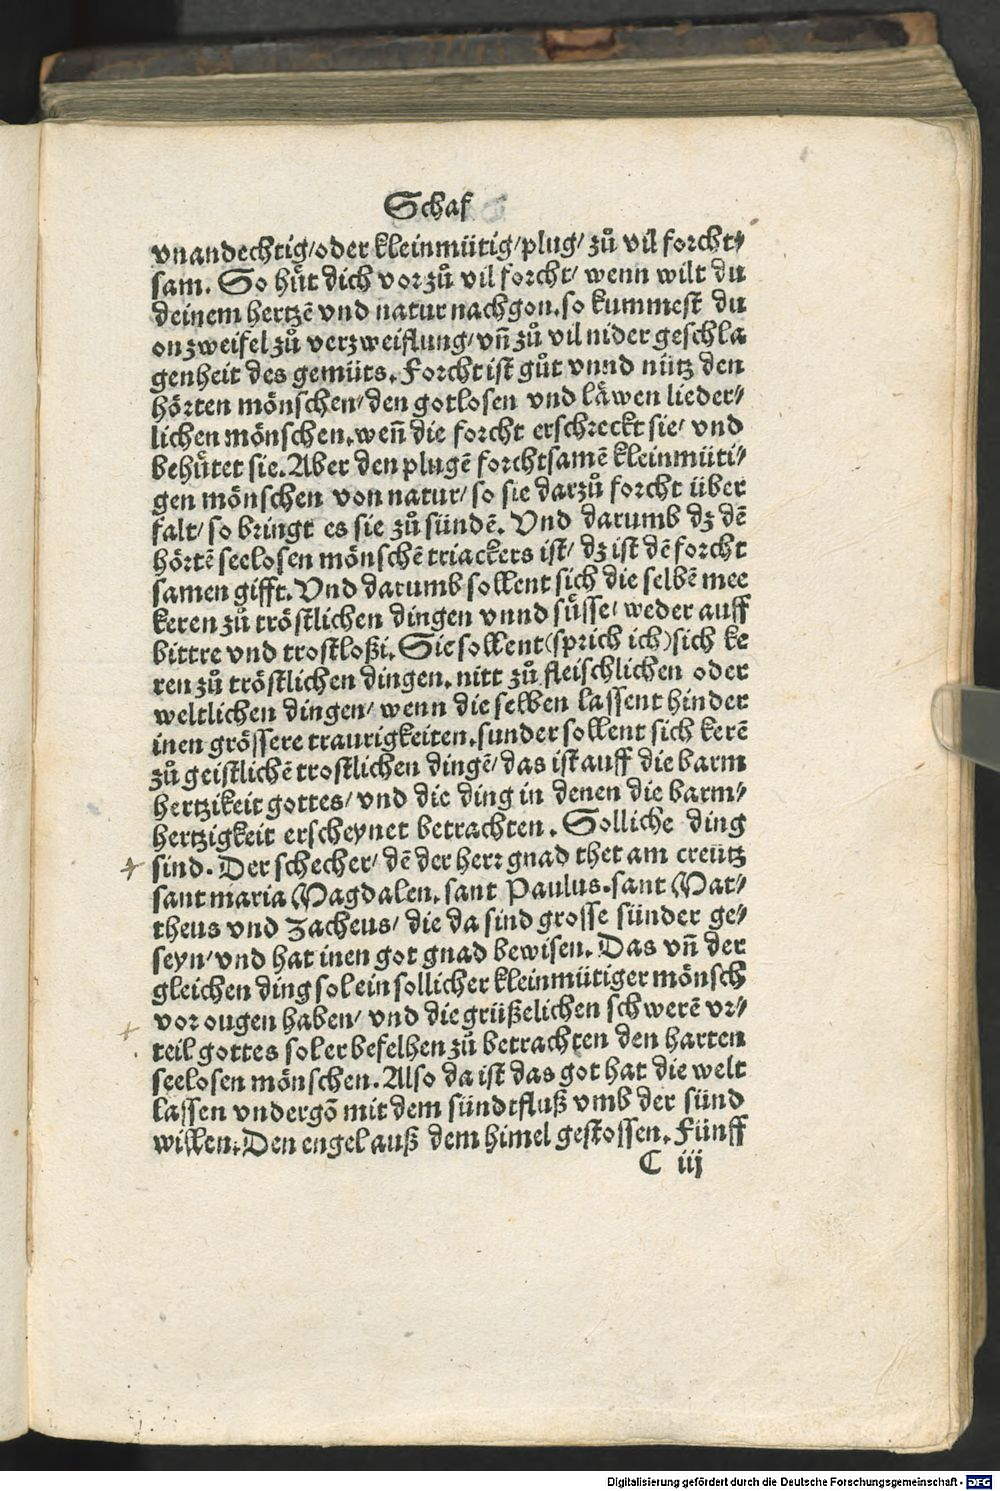 Schaf
vnandechtig/oder kleinmütig/plug/ zů vil forcht⸗
sam. So hu̇t dich vor zů vil forcht/ wenn wilt du
deinem hertzē vnd natur nachgon. so kummest du
on zweifel zů verzweiflung/ vn̄ zů vil nider geschla
genheit des gemüts. Forcht ist gůt vnnd nütz den
hörten mönschen/ den gotlosen vnd läwen lieder⸗
lichen mönschen. wen̄ die forcht erschreckt sie/ vnd
behütet sie. Aber den plugē forchtsamē kleinmüti⸗
gen mönschen von natur/ so sie darzů forcht über
falt/ so bringt es sie zů sündē. Vnd darumb dz dē
hörtē seelosen mönschē triackers ist/ dz ist dē forcht
samen gifft. Vnd darumb sollent sich die selbē mee
keren zů tröstlichen dingen vnnd süsse/ weder auff
bittre vnd trostloßi. Sie sollent (sprich ich) sich ke
ren zů tröstlichen dingen. nitt zů fleischlichen oder
weltlichen dingen/ wenn die selben lassent hinder
inen grössere traurigkeiten. sunder sollent sich kerē
zů geistlichē trostlichen dingē/ das ist auff die barm
hertzikeit gottes/ vnd die ding in denen die barm⸗
hertzigkeit erscheynet betrachten. Solliche ding
sind. Der schecher/ dē der herr gnad thet am creütz
sant maria Magdalen. sant Paulus. sant Mat⸗
theus vnd Zacheus/ die da sind grosse sünder ge⸗
seyn/ vnd hat inen got gnad bewisen. Das vn̄ der
gleichen ding sol ein sollicher kleinmütiger mönsch
vor ougen haben/ vnd die grüßelichen schwerē vr⸗
teil gottes sol er befelhen zů betrachten den harten
seelosen mönschen. Also da ist das got hat die welt
lassen vndergō mit dem sündtfluß vmb der sünd
willen. Den engel auß dem himel gestossen. Fünff
C iij
Digitalisierung gefördert durch die Deutsche Forschungsgemeinschaft - DFG